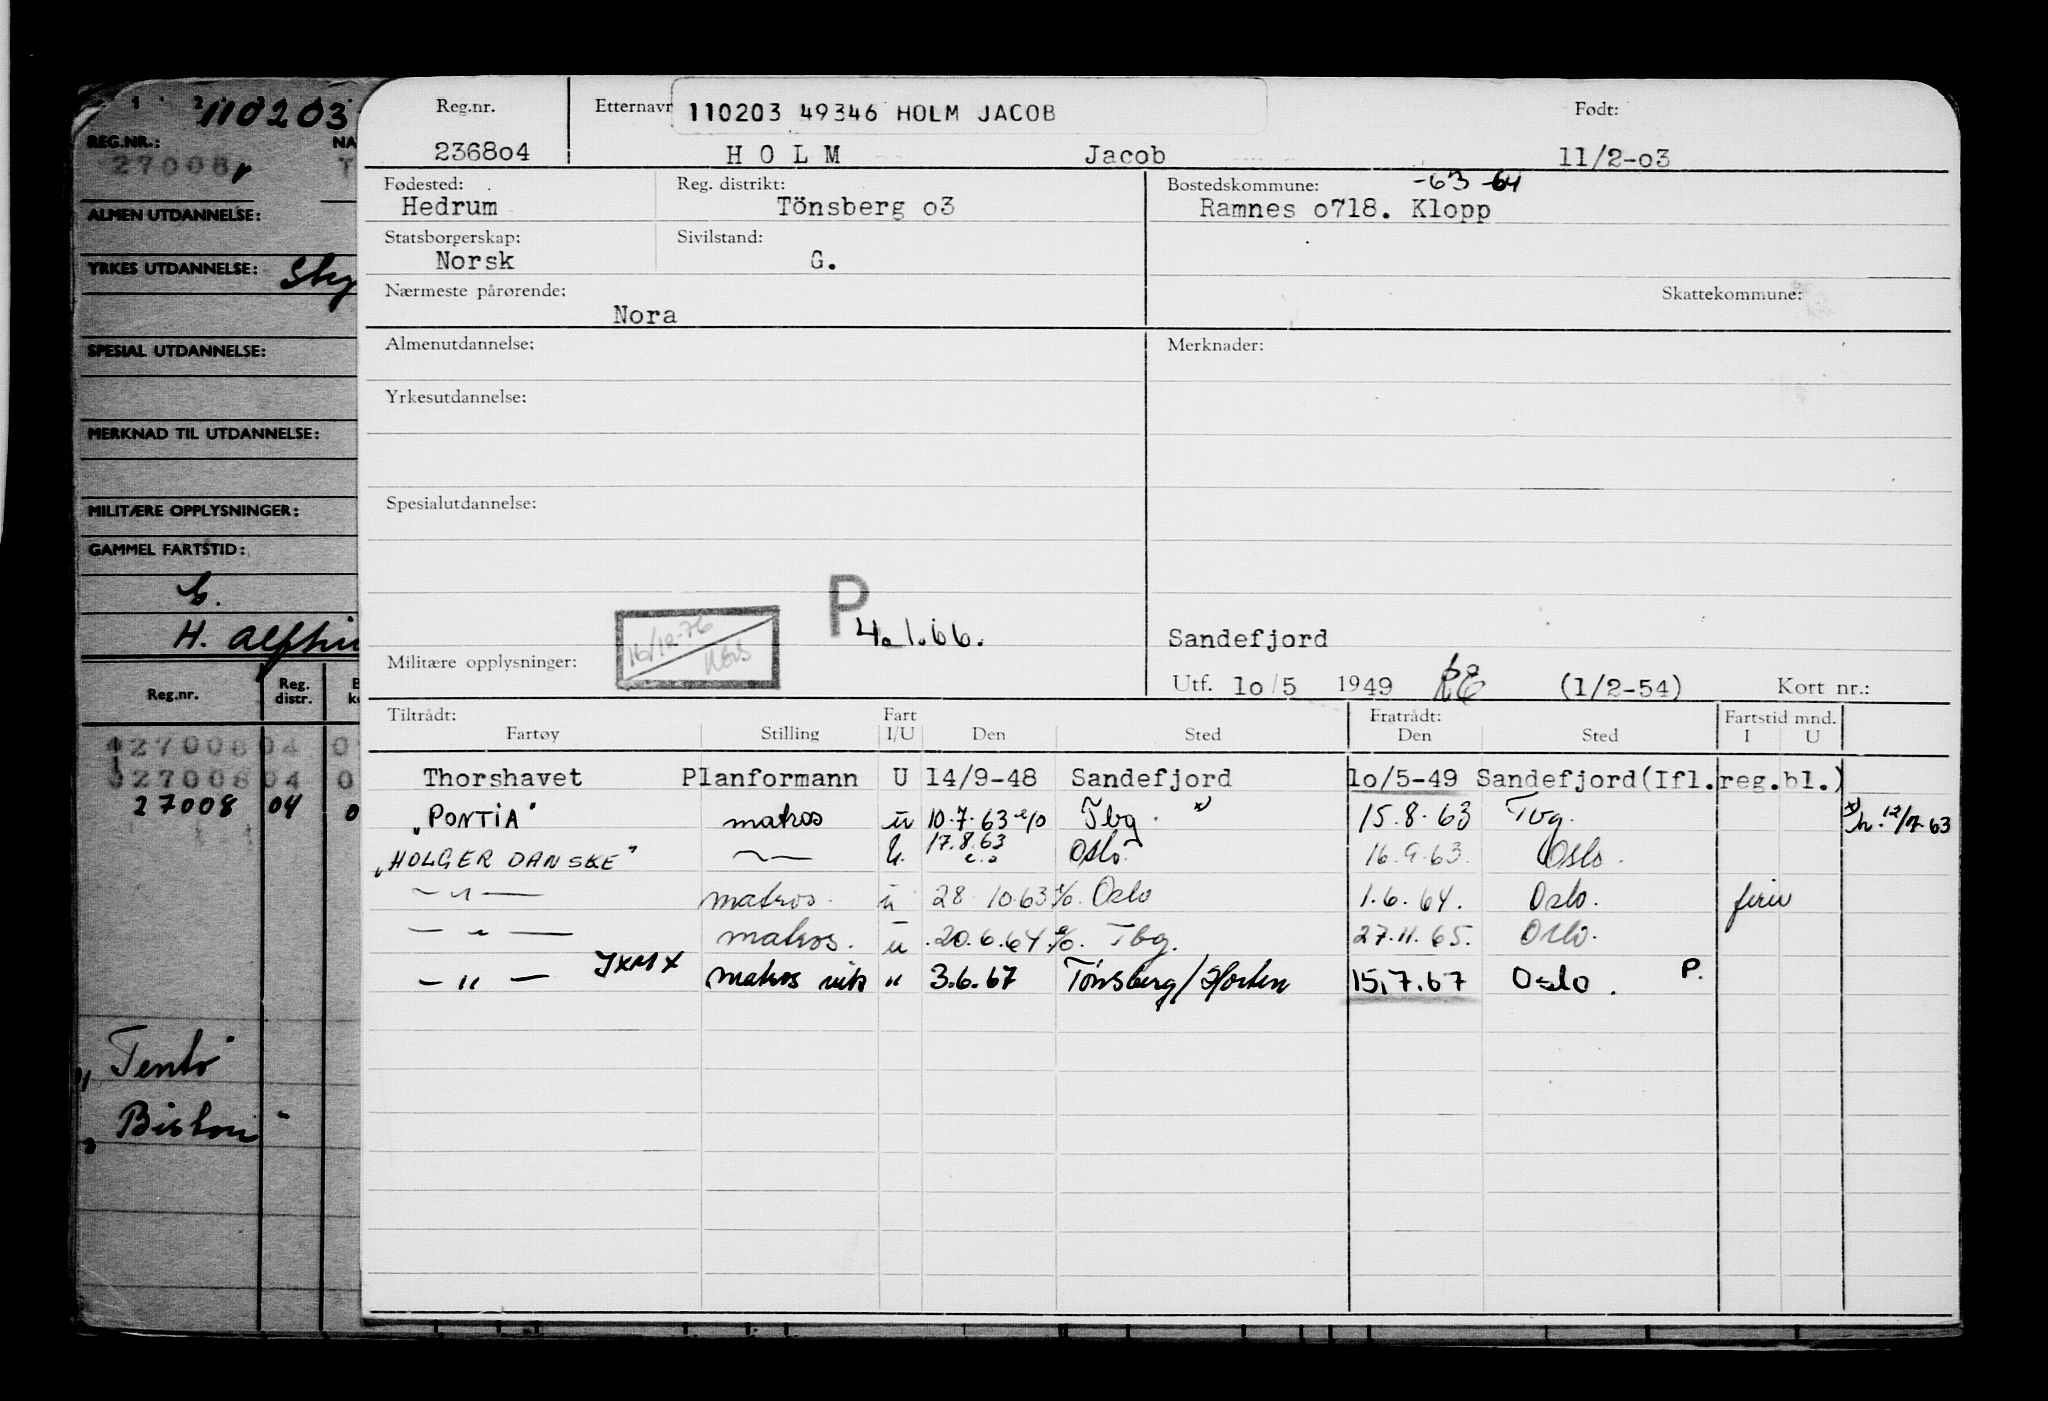 Reg.nr. Etternavn 110203 49346 HOLM JACOB Født:
236804 HOLM Jacob 11/2-03
Fødested: Reg. distrikt: Bostedskommune: -63 -64
Hedrum Tönsberg o3 Ramnes o718. Klopp
Statsborgerskap: Sivilstand:
Norsk G.
Nærmeste pårørende: Skattekommune:
Nora
Almenutdannelse: Merknader:
Yrkesutdannelse:
Spesialutdannelse:
P 4.1.66.
16/12-76
Sandefjord
Militære opplysninger:
Utf. lo/5 1949 (1/2-54) Kort nr.:
Tiltrådt: Fart Fratrådt: Fartstid mnd.
Fartøy Stilling I/U Den Sted Den Sted I U
Thorshavet Planformann U 14/9-48 Sandefjord lo/5-49 Sandefjord(Ifl.reg.bl.)
"PONTIA" matros u 10.7.63 e/o Tbg. x) 15.8.63 Tbg. x) 12/7-63
"HOLGER DANSKE" —"— U. 17.8.63 e.o Oslo. 16.9.63. Oslo.
—"— matros. u 28.10.63 e/o. Oslo 1.6.64. Oslo. ferie
—"— matros. u 20.6.64 e/o. Tbg. 27.11.65. Oslo.
—"— JXMX matros vik " 3.6.67 Tönsberg/Horten 15.7.67 Oslo. P.
1 2 110203
REG.NR.: NA
27008
ALMEN UTDANNELSE:
YRKES UTDANNELSE:
SPESIAL UTDANNELSE:
MERKNAD TIL UTDANNELSE:
MILITÆRE OPPLYSNINGER:
GAMMEL FARTSTID:
H.
Reg.nr. Reg. distr.
27008 04 0
27008 04 0
27008 04 0